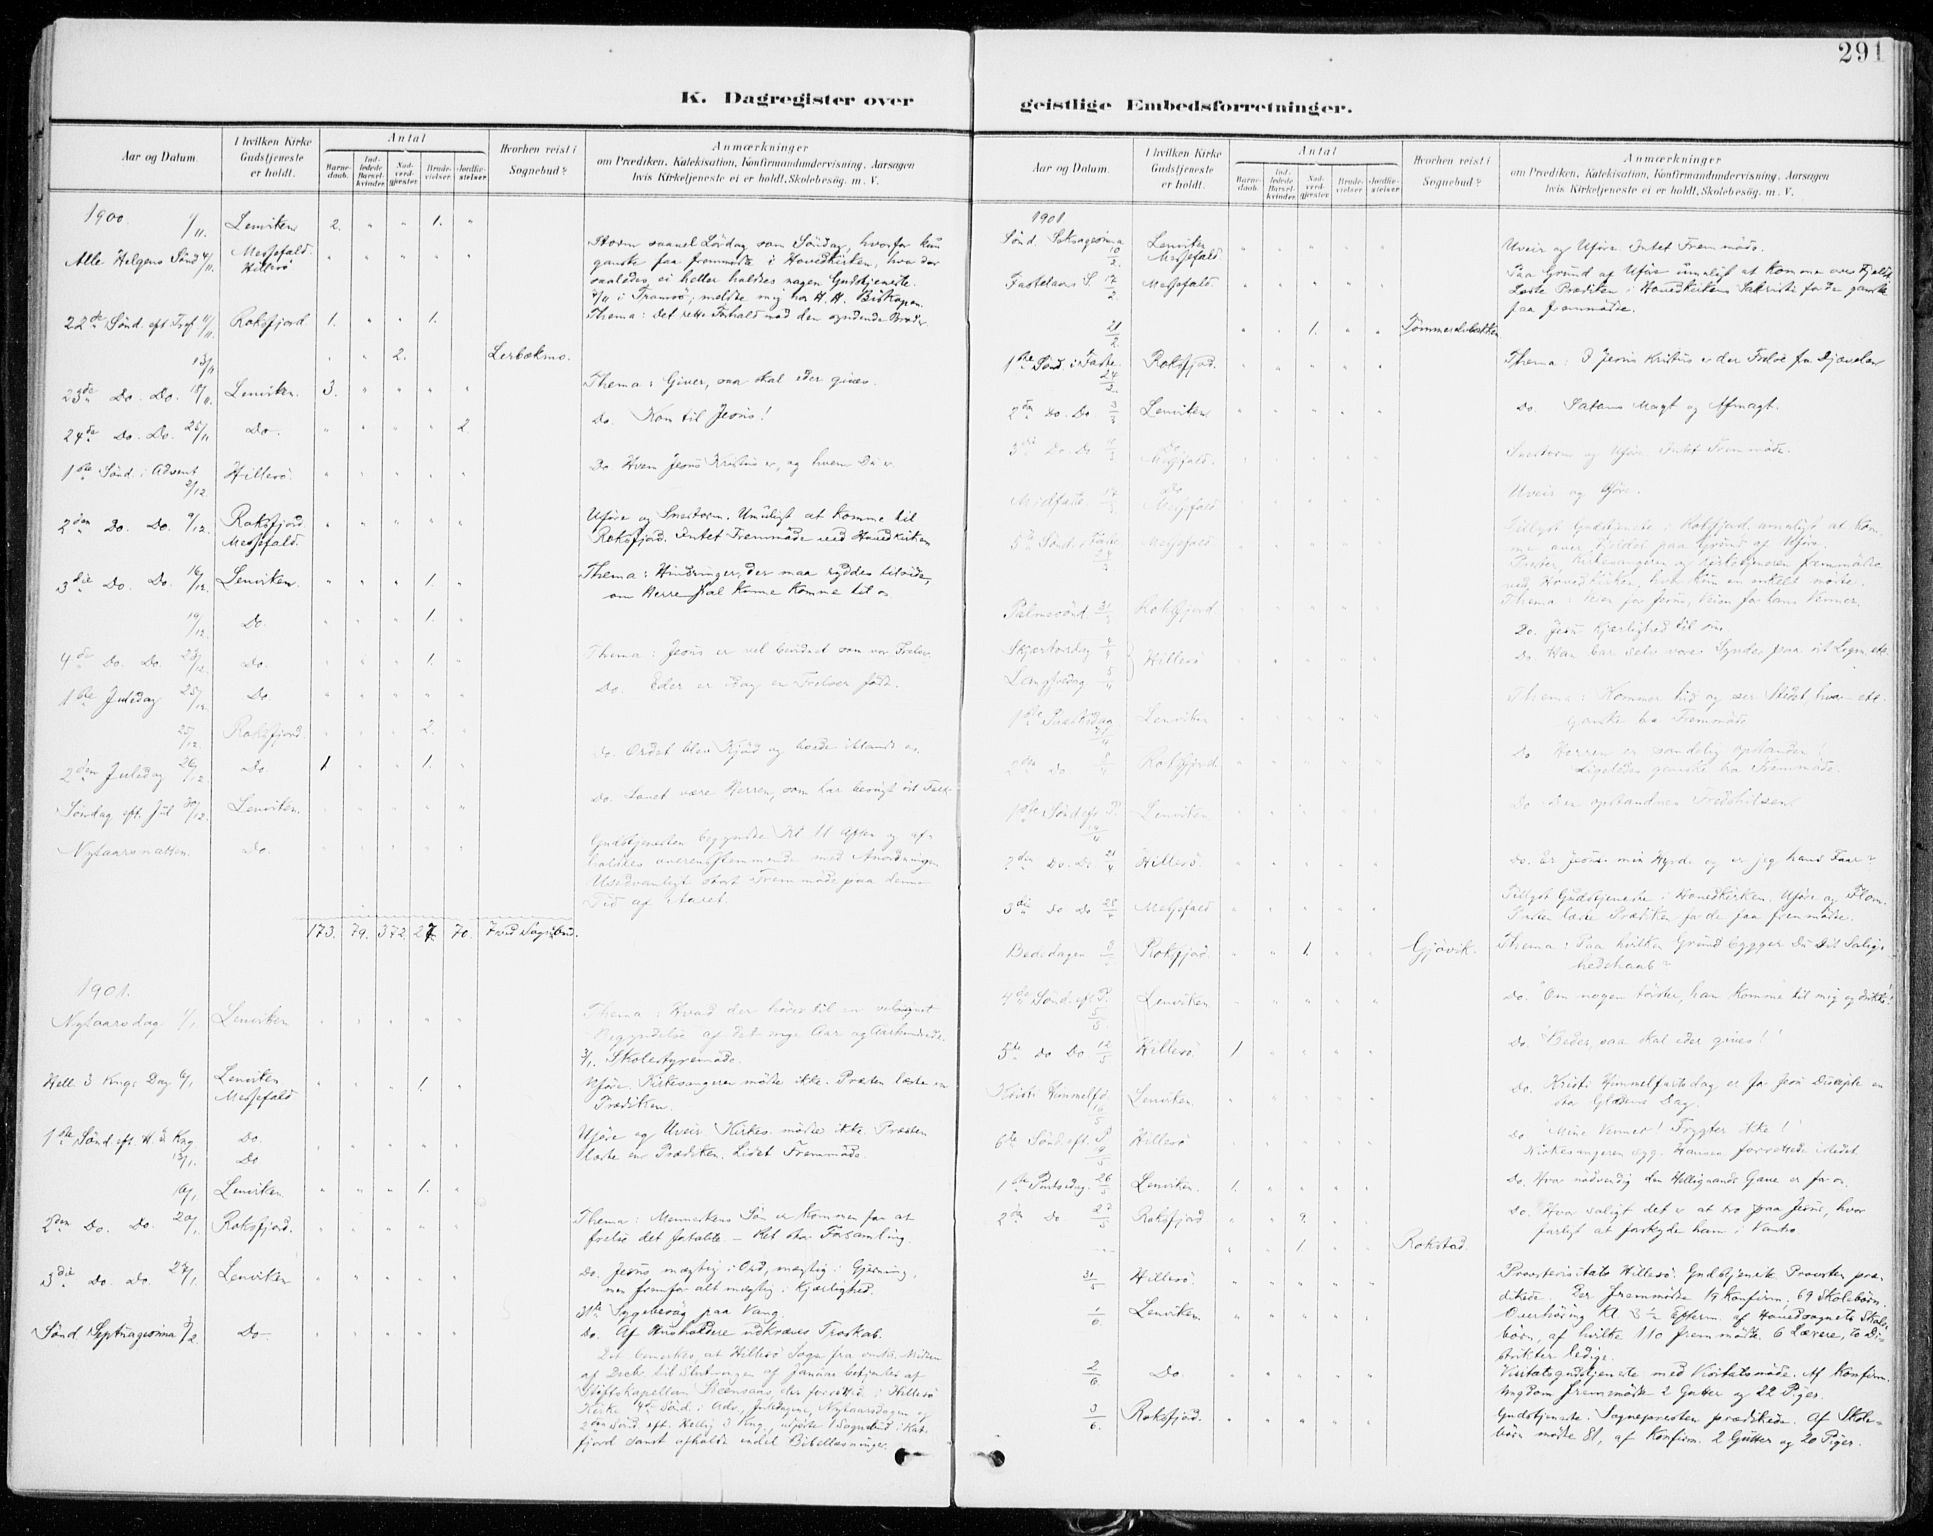 291
K. Dagregister over
geistlige Embedsforretninger.
Aar og Datum.
I hvilken Kirke Gudstjeneste er holdt.
Antal
Barnedaab.
Indledede Barselkvinder.
Nadverdgjester.
Brudevielser.
Jordfæstelser.
Hvorhen reist i Sognebud?
Anmærkninger
om Prædiken, Katekisation, Konfirmandundervisning, Aarsagen
hvis Kirketjeneste ei er holdt, Skolebesøg. m. V.
1900. 1/11. Lenviken 2. " " 1. "
Alle Helgens Sønd 4/11. Messefald. Hillesö " " " " "
Storm saavel Lördag som Söndag, hvorfor kun
ganske faa fremmödte i Hovedkirken, hvor der
saaledes ei heller holdtes nogen Gudstjeneste.
i Tromsö; meldte mig hos H. H. Biskopen.
22de Sönd. eft Tref 11/11 Roksfjord 1. " " 1. " Thema: Det rette Forhold mod den syndende Broder
13/11 " " 2. Lerbækmo.
23de Do. Do. 18/11. Lenviken. 3. " " " " Thema: Giver, saa skal eder gives.
24de Do. Do. 25/11 Do. " " " " 2. Do. Kom til Jesus!
1ste Sönd. i Advent 2/12. Hillesö. " " " " " Do Hvem Jesus Kristus er, og hvem Du er
2den Do. Do. 9/12. Roksfjord. Messefald. " " " " "
Uföre og Snestorm. Umuligt at komme til
Roksfjord. Intet Fremmöde ved Hovedkirken
3die Do. Do. 16/12. Lenviken. " " " 1. "
Thema: Hindringer, der maa ryddes tilside,
om Herren skal kunne komme til os
19/12. Do. " " " 1. "
4de Do. Do. 23/12. Do. " " " 1. " Thema: Jesus er vel bevidnet som vor Frelser
1ste Juledag 25/12. Do " " " " " Do. Eder er idag en Frelser födt.
25/12. Roksfjord. " " " 2. "
2den Juledag 26/12. Do. 1 " " 1. " Do. Ordet blev Kjöd og boede iblandt os.
Söndag eft. Jul 30/12. Lenviken. " " " " " Do. Lovet være Herren, som har besögt sit Folk
Nytaarsnatten. Do.
Gudstjenesten begyndte Kl 11 Aften og af-
holdtes overensstemmende med Anordningen
Usedvanligt stort Fremmöde paa denne
Tid af Aaret.
173. 79. 372. 27. 70. 7
1901.
Nytaarsdag 1/1 Lenviken " " " " "
Thema: Hvad der hörer til en velsignet
Begyndelse af det nye Aar og Aarhundrede.
3/1. Skolestyremöde.
Hell. 3 Kngs Dag 6/1 Lenviken Messefald " " " 1. "
Uföre. Kirkesangeren mödte ikke. Præsten læste en
Prædiken.
1ste Sönd. eft. H. 3 Kng 13/1. Do. Do " " " " "
Uföre og Uveir. Kirkes. mödte ikke. Præsten
læste en Prædiken. Lidet Fremmöde.
16/1 Lenviken " " " 1. "
2den Do. Do. 20/1. Roksfjord. " " " " "
Thema: Menneskens Sön er kommen for at
frelse det fortabte – Ret stor Forsamling.
3die Do. Do. 27/1. Lenviken " " " " "
Do. Jesus mægtig i Ord, mægtig i Gjerning,
men fremfor alt mægtig i Kjærlighed.
31te Sygebesög paa Vang
Sönd Septuagesima 3/2. Do. " " " " "
Do. Af Husholdere udkræves Troskab.
Det bemærkes, at Hillesö Sogn fra Midten
af Decbr. til Slutningen af Januar betjentes af
Stiftskapellan, der forrettede i Hillesö
Kirke 4de Sönd. i Adv., Juledagene, Nytaarsdagen og
2den Sönd. eft. Hellig 3 Kng, reiste i Sognebud i Kat-
fjord samt afholdt endel Bibellæsninger.
1901
Sönd. Seksagesima 10/2. Lenviken Messefald. " " " " " Uveir og Uföre. Intet Fremmöde.
Fastelavns S. 17/2. Messefald. " " " " "
Paa Grund af Uföre umuligt at komme over Fjeldet
Læste Prædiken i Hovedkirkens Sakristi for de ganske
faa fremmödte.
21/2 " " 1. " "
1ste Sönd. i Faste. 24/2. Roksfjord. " " " " " Thema: I Jesus Kristus er der Frelse fra Djævelen
2den Do. Do 3/3 Lenviken " " " " " Do Satans Magt og Afmagt.
3die Do. Do 10/3 Do Messefald. " " " " " Snestorm og Uföre. Intet Fremmöde.
Midfaste 17/3 Do Messefald. " " " " " Uveir og Uföre.
5te Sönd. i Faste 24/3 Messefald. " " " " "
Tillyst Gudstjeneste i Roksfjord, umuligt at kom-
me over Fjeldet paa Grund af Uföre.
Præsten, Kirkesangeren og Kirketjeneren fremmödte
ved Hovedkirken, hvor kun en enkelt mödte.
Palmesönd. 31/3 Roksfjord " " " " " Thema: Veien for Jesus, Veien for hans Venner.
Skjærtorsdag 4/4 Langfredag 5/4 } Hillesö " " " " "
Do. Jesu Kjærlighed til os
Do Han bar selv vore Synder paa sit Legem etc
1ste Paaskedag 7/4 Lenviken " " " " "
Thema: Kommer hid og ser Stedet, hvor etc
Ganske bra Fremmöde
2den Do 8/4 Roksfjord " " " " "
Do Herren er sandelig opstanden!
Ligeledes ganske bra Fremmöde.
1ste Sönd. eft. P. 14/4 Lenviken " " " " " Do Den opstandnes Fredshilsen
2den Do. Do. 21/4 Hillesö. " " " " " Do. Er Jesus min Hyrde og er jeg hans Faar?
3die Do Do 28/4 Messefald " " " " "
Tillyst Gudstjeneste i Hovedkirken. Uföre og Flom.
Præsten læste Prædiken for de faa fremmödte.
Bededagen 3/5 Roksfjord. " " 1. " " Gjövik.
Thema: Paa hvilken Grund bygger Du Dit Salig-
hedshaab?
4de Sönd. eft P. 5/5. Lenviken " " " " " Do. "Om nogen törster, han komme til mig og drikke!"
5te Do Do 12/5 Hillesö. 1 " " " " Do. "Beder, saa skal eder gives!"
Kristi Himmelfd. 16/5 Lenviken. " " " " "
Do. Kristi Himmelfartsdag er for Jesu Disciple en
stor Glædens Dag.
6te Sönd. eft. P. 19/5 Hillesö " " " " "
Do "Mine Venner! Frygter ikke!"
Kirkesangeren syg. Hansen forrettede istedet
1ste Pintsedag. 26/5 Lenviken. 1. " " " " Do. Hvor nödvendig den Helligaands Gave er for os.
2den Do. 27/5 Roksfjord " " 9. " "
Do. Hvor saligt det er at tro paa Jesus, hvor
farligt at forskyde ham i Vantro.
" " 1. " " Rokstad.
31/5 Hillesö. " " " " "
Provstevisitats Hillesö. Gudstjeneste Provsten præ-
dikede. Der fremmödte 19 Konfirm. 69 Skolebörn.
1/6 Lenviken " " " " "
Overhöring Kl. 3½ Efterm. af Hovedsognets Skole-
börn, af hvilke 110 fremmödte. 6 Lærere, to Di-
strikter ledige.
2/6 Do. " " " " "
Visitatsgudstjeneste med Visitatsmöde. Af Konfirm.
Ungdom fremmödte 2 Gutter og 22 Piger.
3/6. Roksfjord. " " " " "
Gudstjeneste. Sognepresten prædikede. Af Skole-
börn mödte 81, af Konfirm. 2 Gutter og 20 Piger.